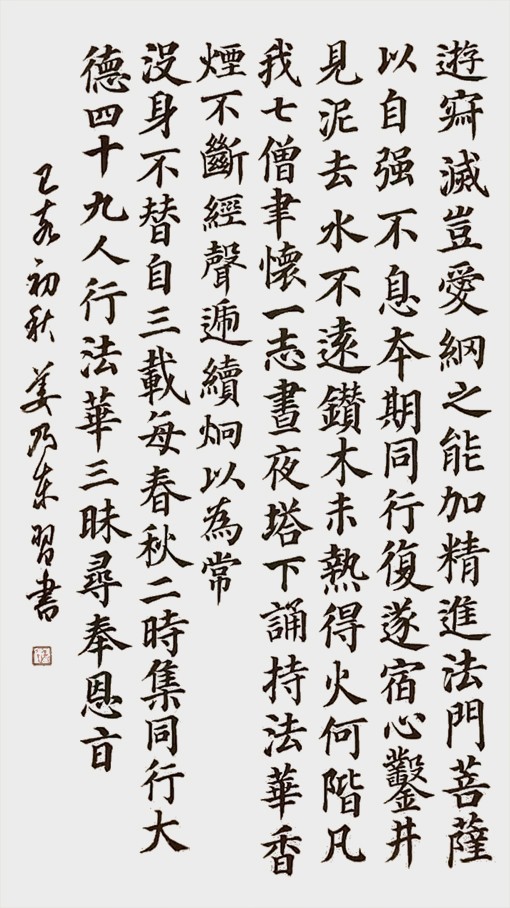 遊寂滅豈愛網之能加精進法門菩薩
以自强不息本期同行復遂宿心鑿井
見泥去水不遠鑽木未熱得火何階凡
我七僧聿懷一志晝夜塔下誦持法華香
煙不斷經聲遞續炯以為常
没身不替自三載每春秋二時集同行大
德四十九人行法華三昧尋奉恩旨
己亥初秋姜乃东習書